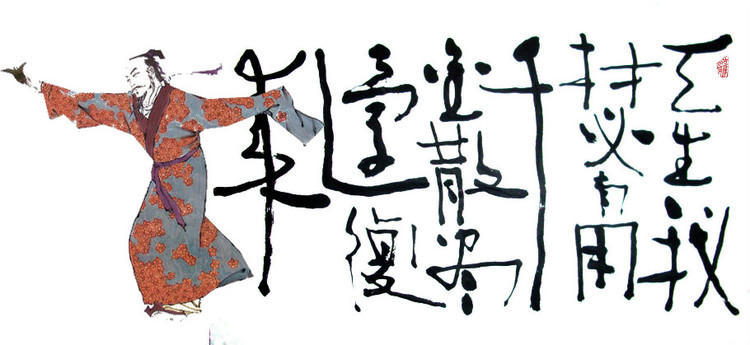 天生我
材必有用
千
金散尽
還復
来